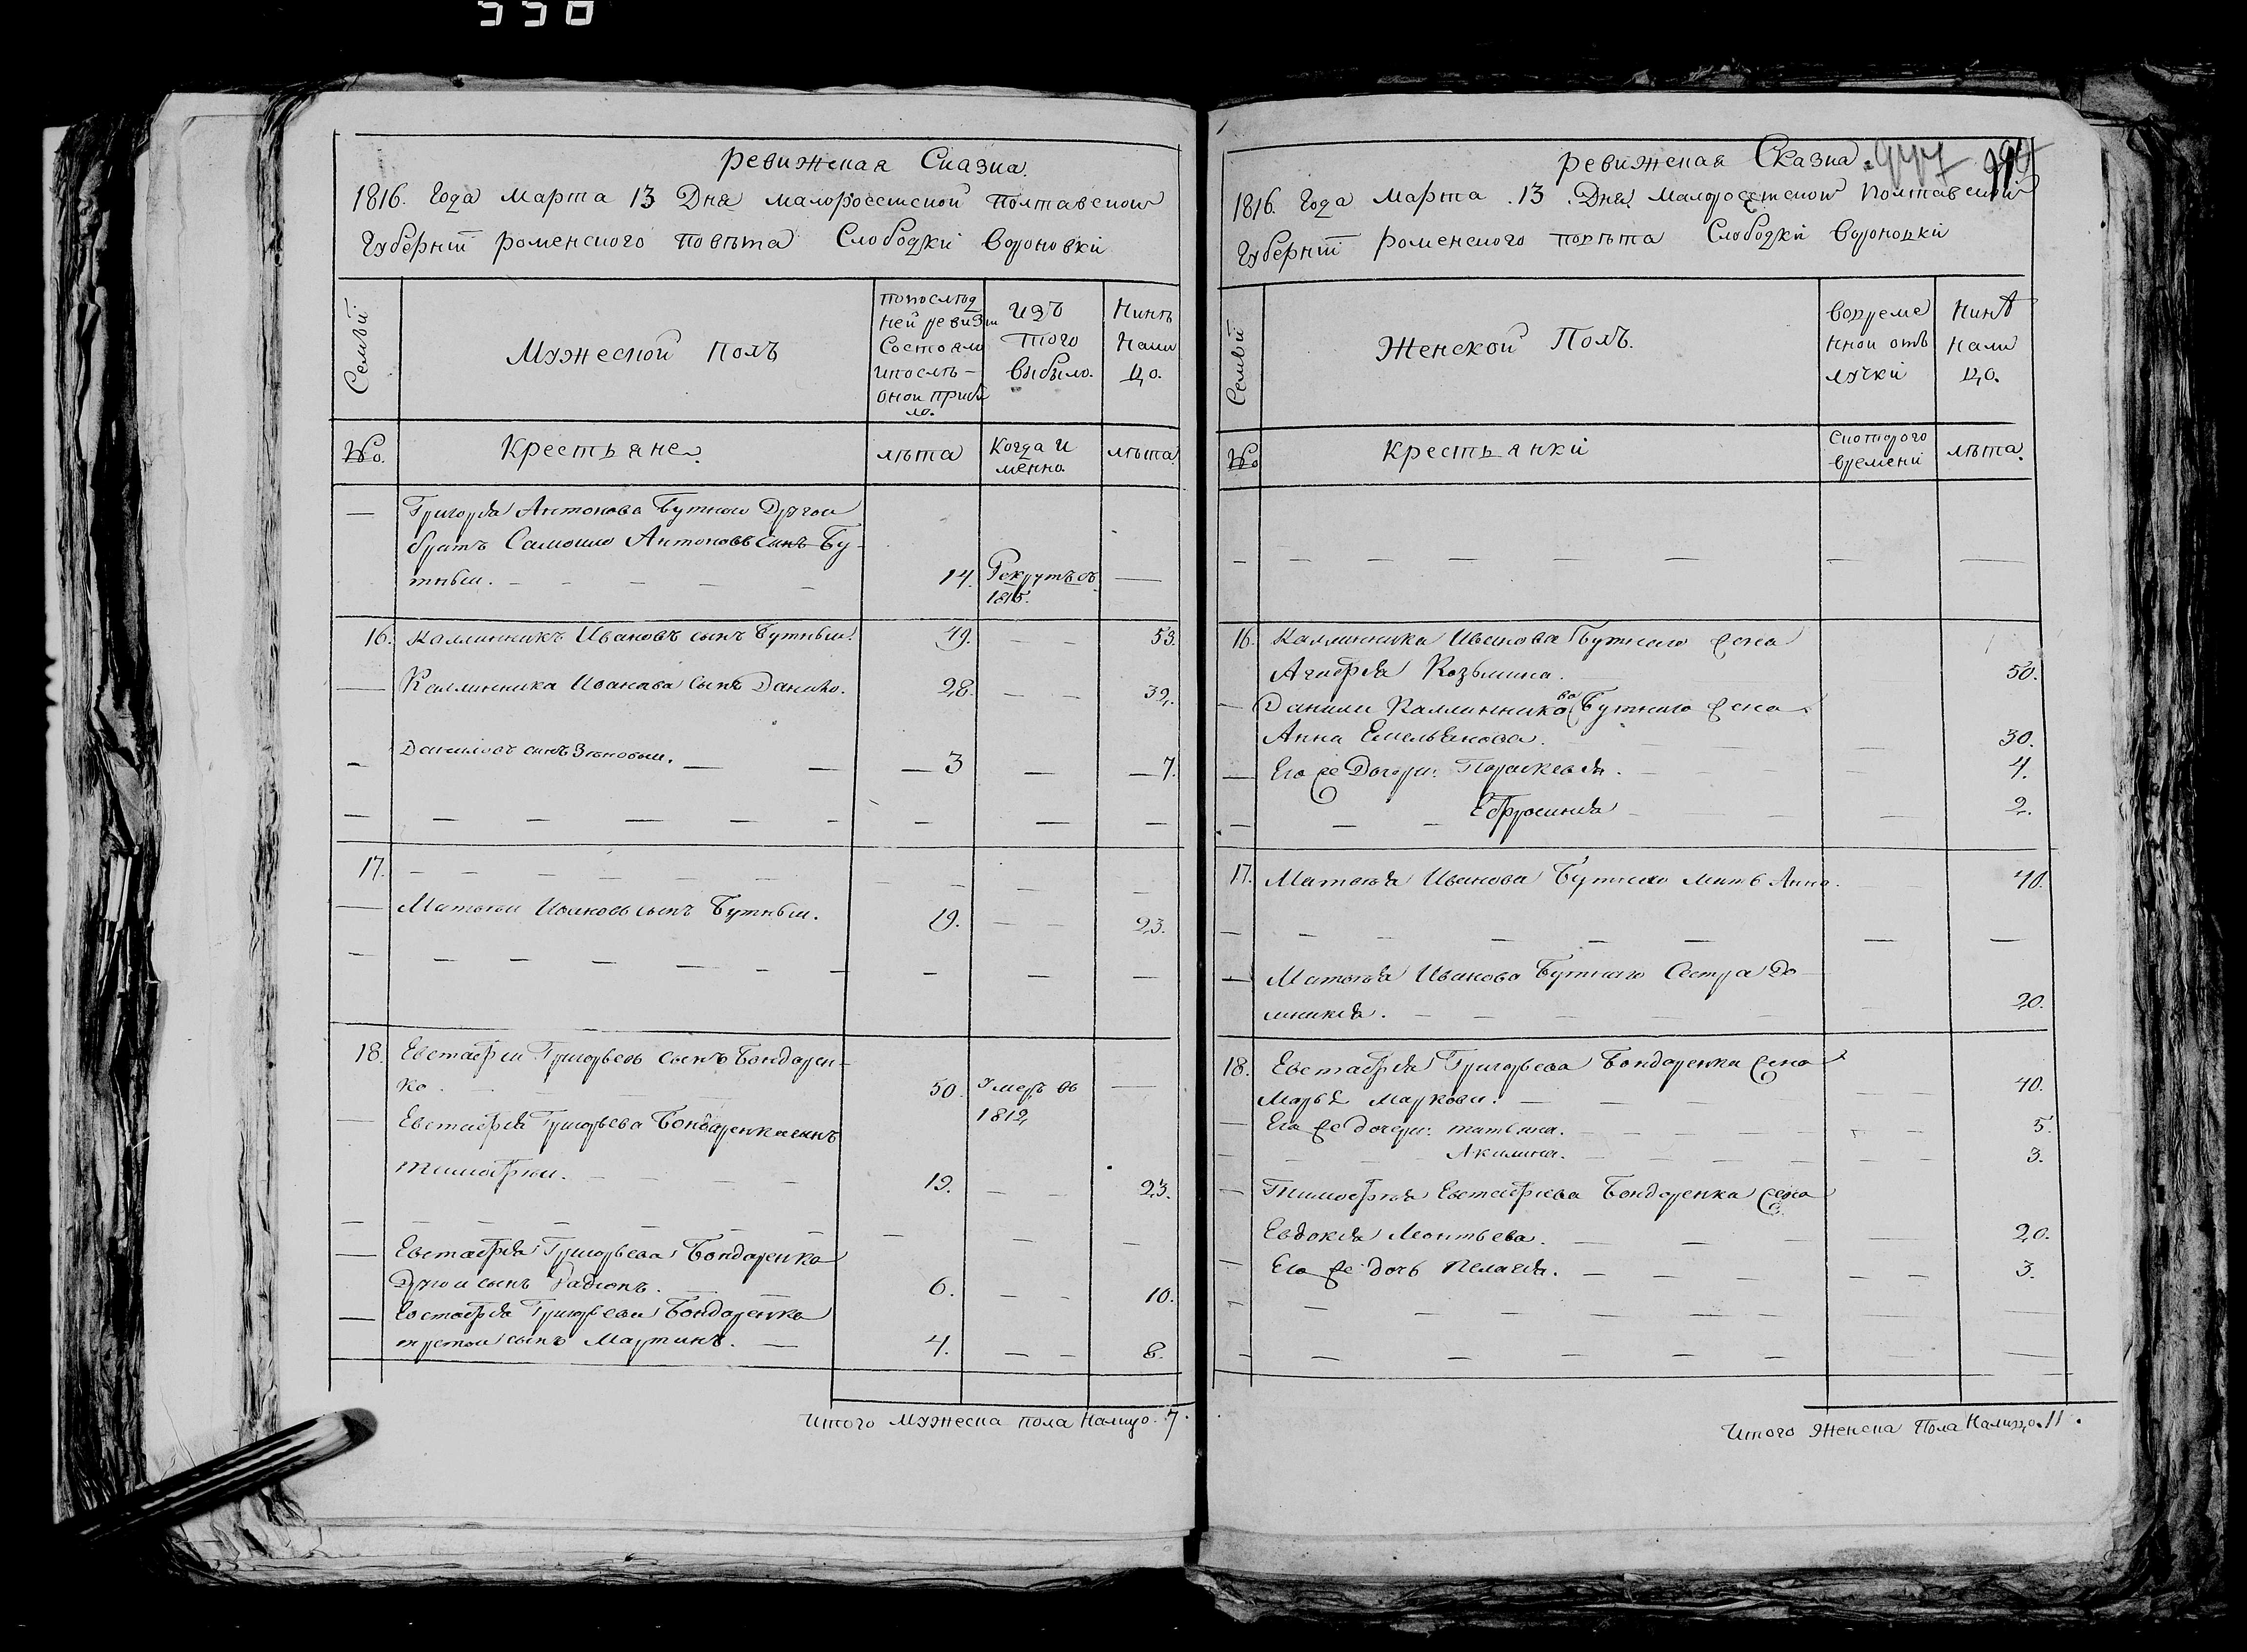 558
Ревижская Сказка.
1816. Года Марта 13 Дня малоросссiской Полтавской
Губернiи роменского повѣта Слободки Вороновки
Семьи
Мужеской полъ
попослѣд
ней ревизiи
Состояло
ипослѣ-
оной прибы
ло.
изъ
того
выбыло.
Нинѣ
Нали
цо.
№.
Крестьяне.
лѣта
Когда и
менно
лѣта
— Григорiя Антонова Бутного Другой
братъ Самойло Антоновъ сынъ Бу-
тный. 14. Рекрутъ въ —
1815.
16. Каллинникъ Ивановъ сынъ Бутный. 49. — — 53.
— Каллинника Иванова сынъ Данило. 28. — — 32.
— Даниловъ синъ Зѣновiй. — 3 — 7.
17.
— Матвѣй Ивановъ сынъ Бутный. 19. — — 23.
18. Евстафiй Григорьевъ сынъ Бондарен-
ко. 50. Умеръ въ —
1812
— Евстафiя Григорьева Бондаренка синъ
тимофѣй. 19. — — 23.
— Евстафiя Григорьева Бондаренка
Другой сынъ Радiонъ. 6. — — 10.
— Евстафiя Григорьева Бондаренка
третой сынъ Мартинъ. — 4. — — 8.
Итого Мужеска пола Налицо. 7.
Ревижская Сказка.
1816. Года Марта 13. Дня Малоросссiской Полтавской
Губернiи роменского повѣта Слободки Вороновки
Семьи
Женской Полъ.
Вовреме
нной отъ
лучки
Нинѣ
нали
цо.
№
Крестьянки
Скоторого
времени
лѣта.
16. Каллинника Иванова Бутного жена
Агафiя Козьмина. 50.
— Данили Каллинникова Бутного жена
Анна Емельянова. 30.
— Его же Дочери: Параскевiя. 4.
Ефросинiя 2.
17. Матвѣя Иванова Бутного мать Анна. 40.
— Матвѣя Иванова Бутного Сестра До-
мникiя. 20.
18. Евстафiя Григорьева Бондаренка жена
Марья Маркова. 40.
— Его же дочери: татiяна. 5.
Акилина. 3.
— Тимофѣя Евстафiева Бондаренка жена
Евдокiя Леонтьева. 20.
— Его же дочь Пелагiя. 3.
Итого Женска Пола Налицо. 11.